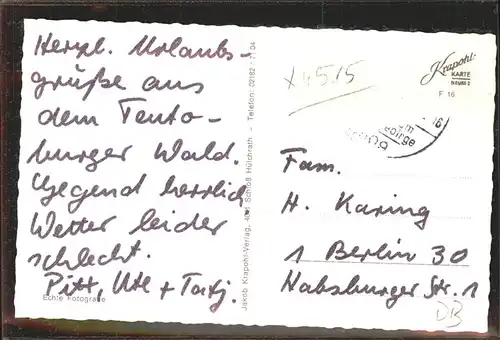 Herzl. Urlaubs-
grüße aus
dem Teuto-
burger Wald.
Gegend herrlich
Wetter leider
schlecht.
Pitt, Ute +
Echte Fotografie
Jakob Krapohl-Verlag, Schloß Hülchrath - Telefon: 02182 - 71 04
x 4515
Krapohl-
KARTE
F 16
Fam.
H. Karing
1 Berlin 30
Habsburger Str. 1
DB